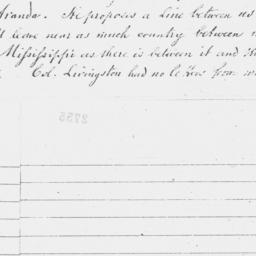 Aranda. He proposes a Line between us
leave near as much country between
Mississippi as there is between it and
Col. Livingston had no letters from
2755